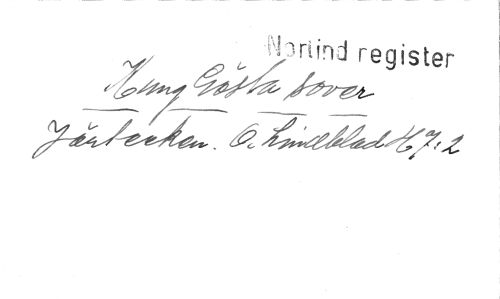 Norlind register
Kung Gösta sover
Järtecken. O. Lindblad H7:2